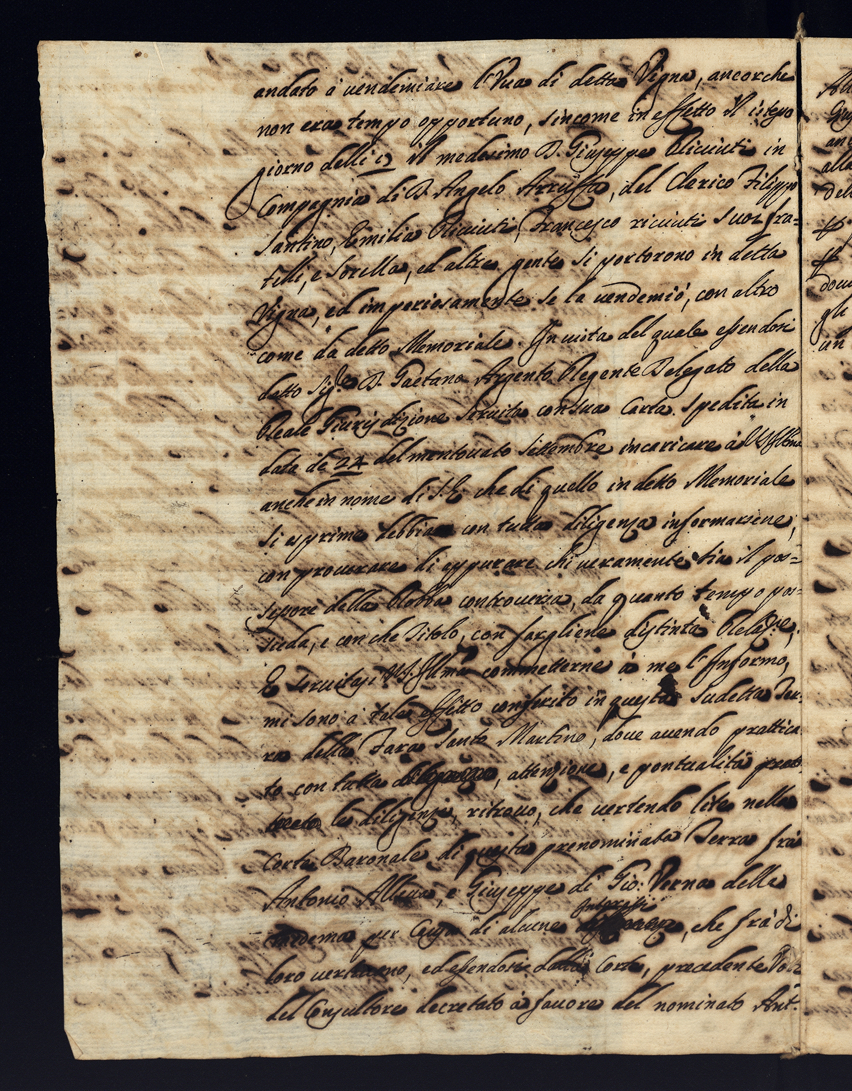 andato à vendemiare l'Uva di detta Vigna, ancorche
non era tempo opportuno, sincome in effetto il istesso
giorno delli 12 il medesimo D. Giuseppe Ricciuti in
Compagnia di D. Angelo Arruffa, del Clerico Filippo
Santino, Emilia Ricciuti, Francesco ricciuti suoi fra=
telli, e Sorella, ed altre gente si portorono in detta
Vigna, ed imperiosamente se la vendemiò, con altro
come da detto Memoriale. In vista del quale essendosi
detto Sig.re D. Gaetano Argento Regente Delegato della
Reale Giurisdizione servita con sua Carta spedita in
data de 24 del mentovato settembre incaricare à V.S. Ill.ma
anche in nome di S.E. che di quello in detto Memoriale
si esprime debbia con tutta diligenza informarsene,
con procurare di appurare chi veramente sia il pos=
sessore della Robba controversa, da quanto tempo pos=
sieda, e con che Titolo, con fargliene distinta Relaz.ne,
E servitasi V.S. Ill.ma commetterne à me l'Informo,
mi sono à tale effetto conferito in questa sudetta Ter=
ra della Fara Santo Martino, dove avendo prattica=
to con tutta diligenza, attenzione, e pontualità
le diligenze, ritrovo, che vertendo lite nella
Corte Baronale di questa prenominata Terra frà
Antonio Alleva, e Giuseppe di Gio: Verna della
medema per Causa di alcune interessi, che frà di
loro vertevano, ed essendosi dalla Corte, precedente Vo=
del Consultore decretato à favore del nominato Ant.